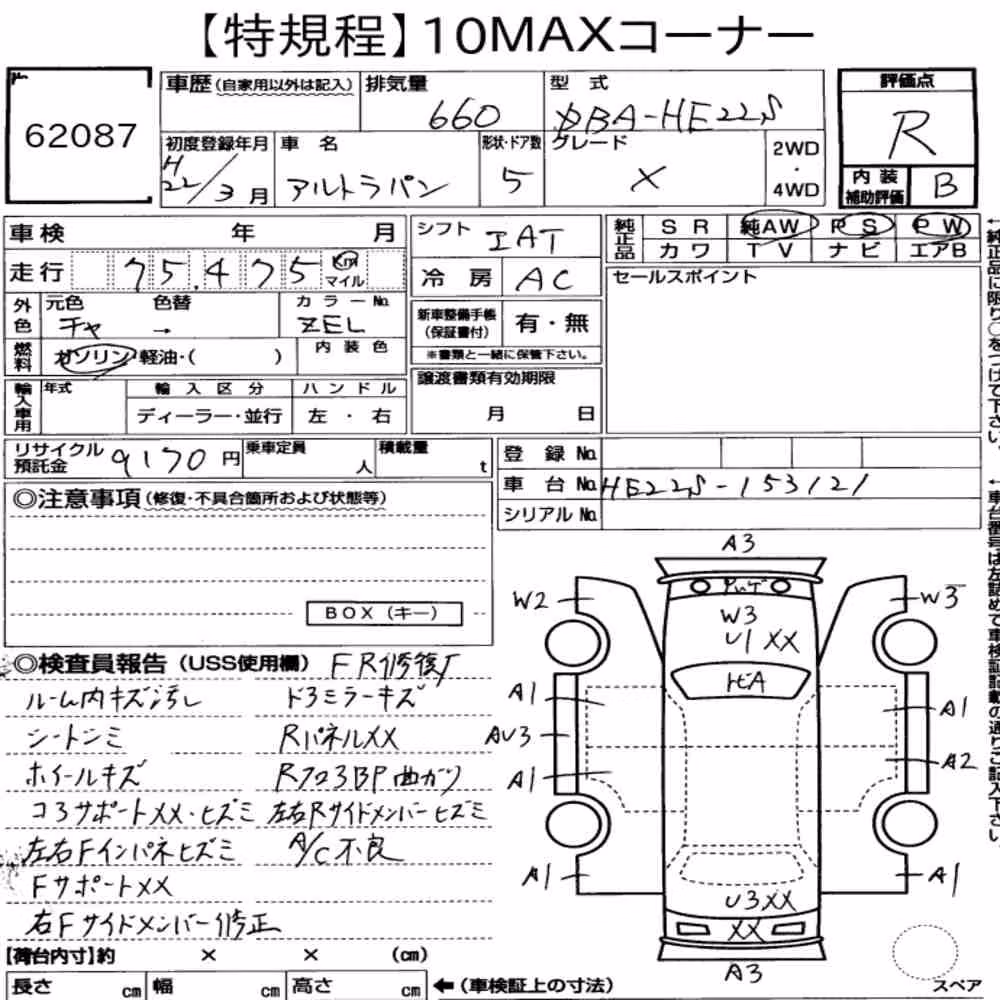 【特規程】10MAXコーナー
62087
車歴(自家用以外は記入) 排気量 660 型式 DBA-HE22S
初度登録年月 H22/3月 車名 アルトラパン 形状・ドア数 5 グレード X 2WD・4WD
評価点 R
内装補助評価 B
車検 年 月
走行 75,475 km マイル
外色 元色 チャ 色替 → カラーNo. ZEL
燃料 ガソリン・軽油・( ) 内装色
輸入車用 年式 輸入区分 ディーラー・並行 ハンドル 左・右
シフト IAT
冷房 AC
新車整備手帳(保証書付) 有・無
※書類と一緒に保管下さい。
譲渡書類有効期限 月 日
純正品 SR 純AW PS PW
カワ TV ナビ エアB
セールスポイント
←純正品に限り○をつけて下さい。
リサイクル預託金 9170円 乗車定員 人 積載量 t
登録No.
車台No. HE22S-153121
シリアルNo.
←車台番号は左詰めで車検証記載の通りご記入下さい。
◎注意事項(修復・不具合箇所および状態等)
BOX(キー)
◎検査員報告(USS使用欄) FR修復有
ルーム内キズ汚レ ドアミラーキズ
シートシミ RパネルXX
ホイールキズ RフロアBP曲ガリ
コアサポートXX・ヒズミ 左右Rサイドメンバーヒズミ
左右Fインパネヒズミ A/C不良
FサポートXX
右Fサイドメンバー修正
A3
W2
W3
W3
U1 XX
トビA
A1
A1
AU3
A2
A1
A1
A1
U3XX
XX
A3
スペア
【荷台内寸】約 × × (cm)
長さ cm 幅 cm 高さ cm ←(車検証上の寸法)